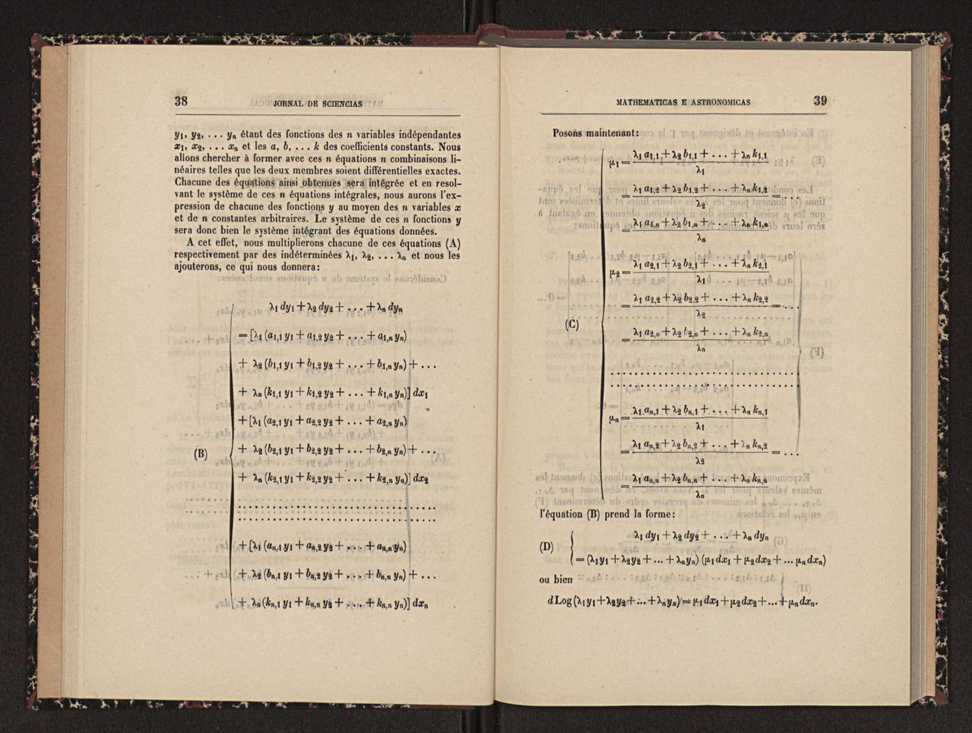 38 JORNAL DE SCIENCIAS
y₁, y₂, . . . yₙ étant des fonctions des n variables indépendantes
x₁, x₂, . . . xₙ et les a, b, . . . k des coefficients constants. Nous
allons chercher à former avec ces n équations n combinaisons li-
néaires telles que les deux membres soient différentielles exactes.
Chacune des équations ainsi obtenues sera intégrée et en resol-
vant le système de ces n équations intégrales, nous aurons l'ex-
pression de chacune des fonctions y au moyen des n variables x
et de n constantes arbitraires. Le système de ces n fonctions y
sera donc bien le système intégrant des équations données.
A cet effet, nous multiplierons chacune de ces équations (A)
respectivement par des indéterminées λ₁, λ₂, . . . λₙ et nous les
ajouterons, ce qui nous donnera:
λ₁ dy₁ + λ₂ dy₂ + . . . + λₙ dyₙ
= [λ₁ (a₁,₁ y₁ + a₁,₂ y₂ + . . . + a₁,ₙ yₙ)
+ λ₂ (b₁,₁ y₁ + b₁,₂ y₂ + . . . + b₁,ₙ yₙ) + . . .
+ λₙ (k₁,₁ y₁ + k₁,₂ y₂ + . . . + k₁,ₙ yₙ)] dx₁
+ [λ₁ (a₂,₁ y₁ + a₂,₂ y₂ + . . . + a₂,ₙ yₙ)
(B) + λ₂ (b₂,₁ y₁ + b₂,₂ y₂ + . . . + b₂,ₙ yₙ) + . . .
+ λₙ (k₂,₁ y₁ + k₂,₂ y₂ + . . . + k₂,ₙ yₙ)] dx₂
. . . . . . . . . . . . . . . . . . . . . . . . . . . . . .
. . . . . . . . . . . . . . . . . . . . . . . . . . . . . .
+ [λ₁ (aₙ,₁ y₁ + aₙ,₂ y₂ + . . . + aₙ,ₙ yₙ)
+ λ₂ (bₙ,₁ y₁ + bₙ,ₙ y₂ + . . . + bₙ,ₙ yₙ) + . . .
+ λₙ (kₙ,₁ y₁ + kₙ,ₙ y₂ + . . . + kₙ,ₙ yₙ)] dxₙ
MATHEMATICAS E ASTRONOMICAS 39
Posons maintenant:
μ₁ = (λ₁ a₁,₁ + λ₂ b₁,₁ + . . . + λₙ k₁,₁) / λ₁
= (λ₁ a₁,₂ + λ₂ b₁,₂ + . . . + λₙ k₁,₂) / λ₂ = . . .
= (λ₁ a₁,ₙ + λ₂ b₁,ₙ + . . . + λₙ k₁,ₙ) / λₙ
μ₂ = (λ₁ a₂,₁ + λ₂ b₂,₁ + . . . + λₙ k₂,₁) / λ₁
= (λ₁ a₂,₂ + λ₂ b₂,₂ + . . . + λₙ k₂,₂) / λ₂ = . . .
(C) = (λ₁ a₂,ₙ + λ₂ b₂,ₙ + . . . + λₙ k₂,ₙ) / λₙ
. . . . . . . . . . . . . . . . . . . . . . . .
. . . . . . . . . . . . . . . . . . . . . . . .
μₙ = (λ₁ aₙ,₁ + λ₂ bₙ,₁ + . . . + λₙ kₙ,₁) / λ₁
= (λ₁ aₙ,₂ + λ₂ bₙ,₂ + . . . + λₙ kₙ,₂) / λ₂ = . . .
= (λ₁ aₙ,ₙ + λ₂ bₙ,ₙ + . . . + λₙ kₙ,ₙ) / λₙ
l'équation (B) prend la forme:
λ₁ dy₁ + λ₂ dy₂ + . . . + λₙ dyₙ
(D) = (λ₁y₁ + λ₂y₂ + ... + λₙyₙ) (μ₁ dx₁ + μ₂ dx₂ + ... μₙ dxₙ)
ou bien
d Log (λ₁y₁ + λ₂y₂ + ... + λₙyₙ) = μ₁ dx₁ + μ₂ dx₂ + ... + μₙ dxₙ.